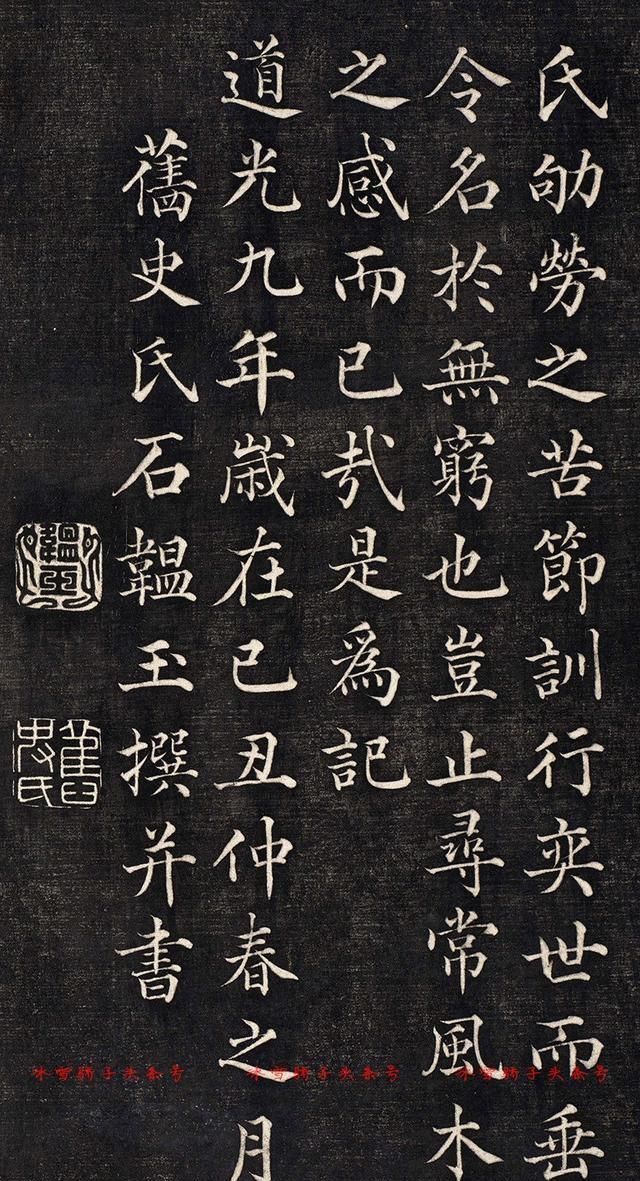 氏劬勞之苦節訓行奕世而垂
令名於無窮也豈止尋常風木
之感而已哉是為記
道光九年歲在己丑仲春之月
舊史氏石韞玉撰并書
韞玉
舊史氏
冰雪骄子头条号 冰雪骄子头条号 冰雪骄子头条号